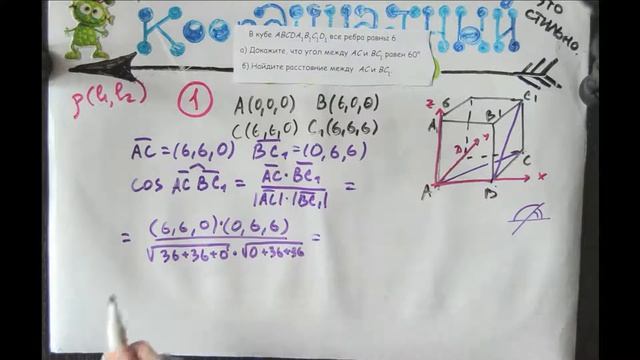 Координатный
это
стильно.
В кубе ABCDA₁B₁C₁D₁ все ребра равны 6
а) Докажите, что угол между AC и BC₁ равен 60°
б) Найдите расстояние между AC и BC₁.
ρ(l₁,l₂)
1
A(0,0,0) B(6,0,0)
C(6,6,0) C₁(6,6,6)
AC = (6,6,0) BC₁ = (0,6,6)
cos AC BC₁ = AC · BC₁ / |AC|·|BC₁| =
= (6,6,0)·(0,6,6) / √36+36+0 · √0+36+36 =
z 6
A₁ B₁ C₁
D₁ y
C
A B x